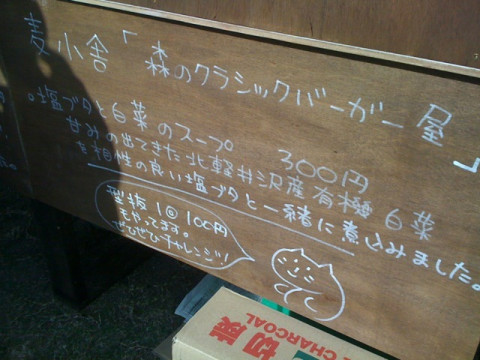 麦小舎「森のクラシックバーガー屋」
。塩ブタと白菜のスープ 300円
甘みの出てきた北軽井沢産有機白菜
を相性の良い塩ブタと一緒に煮込みました。
型抜 1回 100円
もやってます。
ぜひぜひチャレンジ!
切炭
CHARCOAL